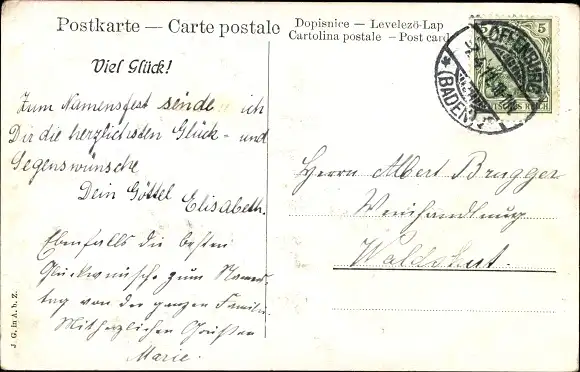 Postkarte — Carte postale
Dopisnice — Levelező-Lap
Cartolina postale — Post card
Viel Glück!
Zum Namensfest sende ich
Dir die herzlichsten Glück- und
Segenswünsche
Dein Göttel
Elisabeth.
Ebenfalls die besten
Glückwünsche zum Namens-
tag von der ganzen Familie.
Mit herzlichen Grüßen
Marie.
Herrn Albert Brugger
Weinhandlung
Waldshut.
5
DEUTSCHES REICH
OFFENBURG
* (BADEN)
J. G. in A. b. Z.